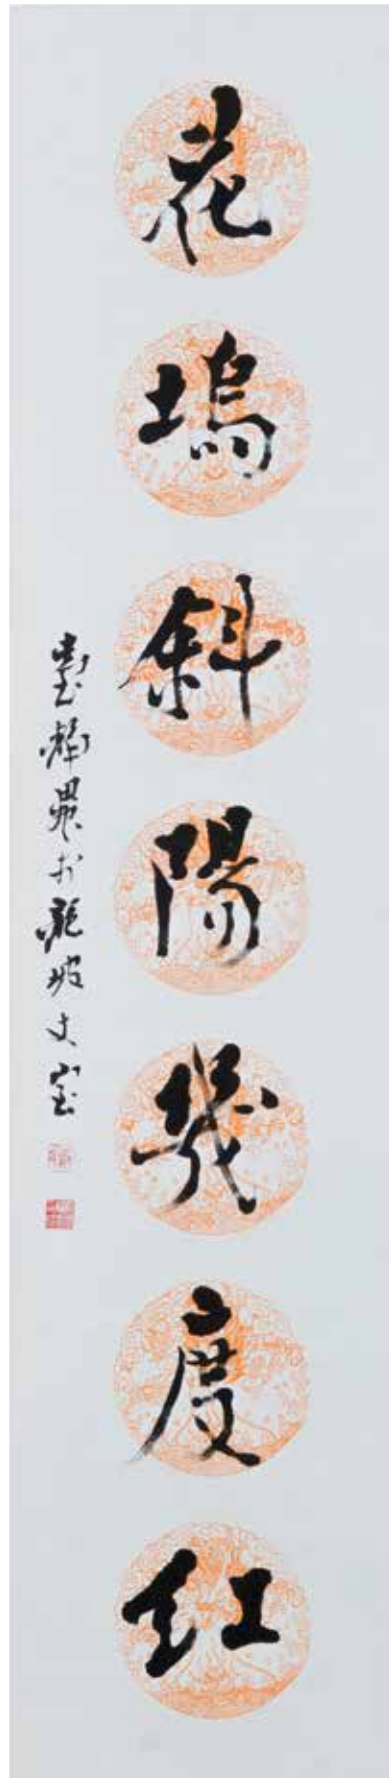 花塢斜陽幾度紅
臺靜農於龍坡丈室